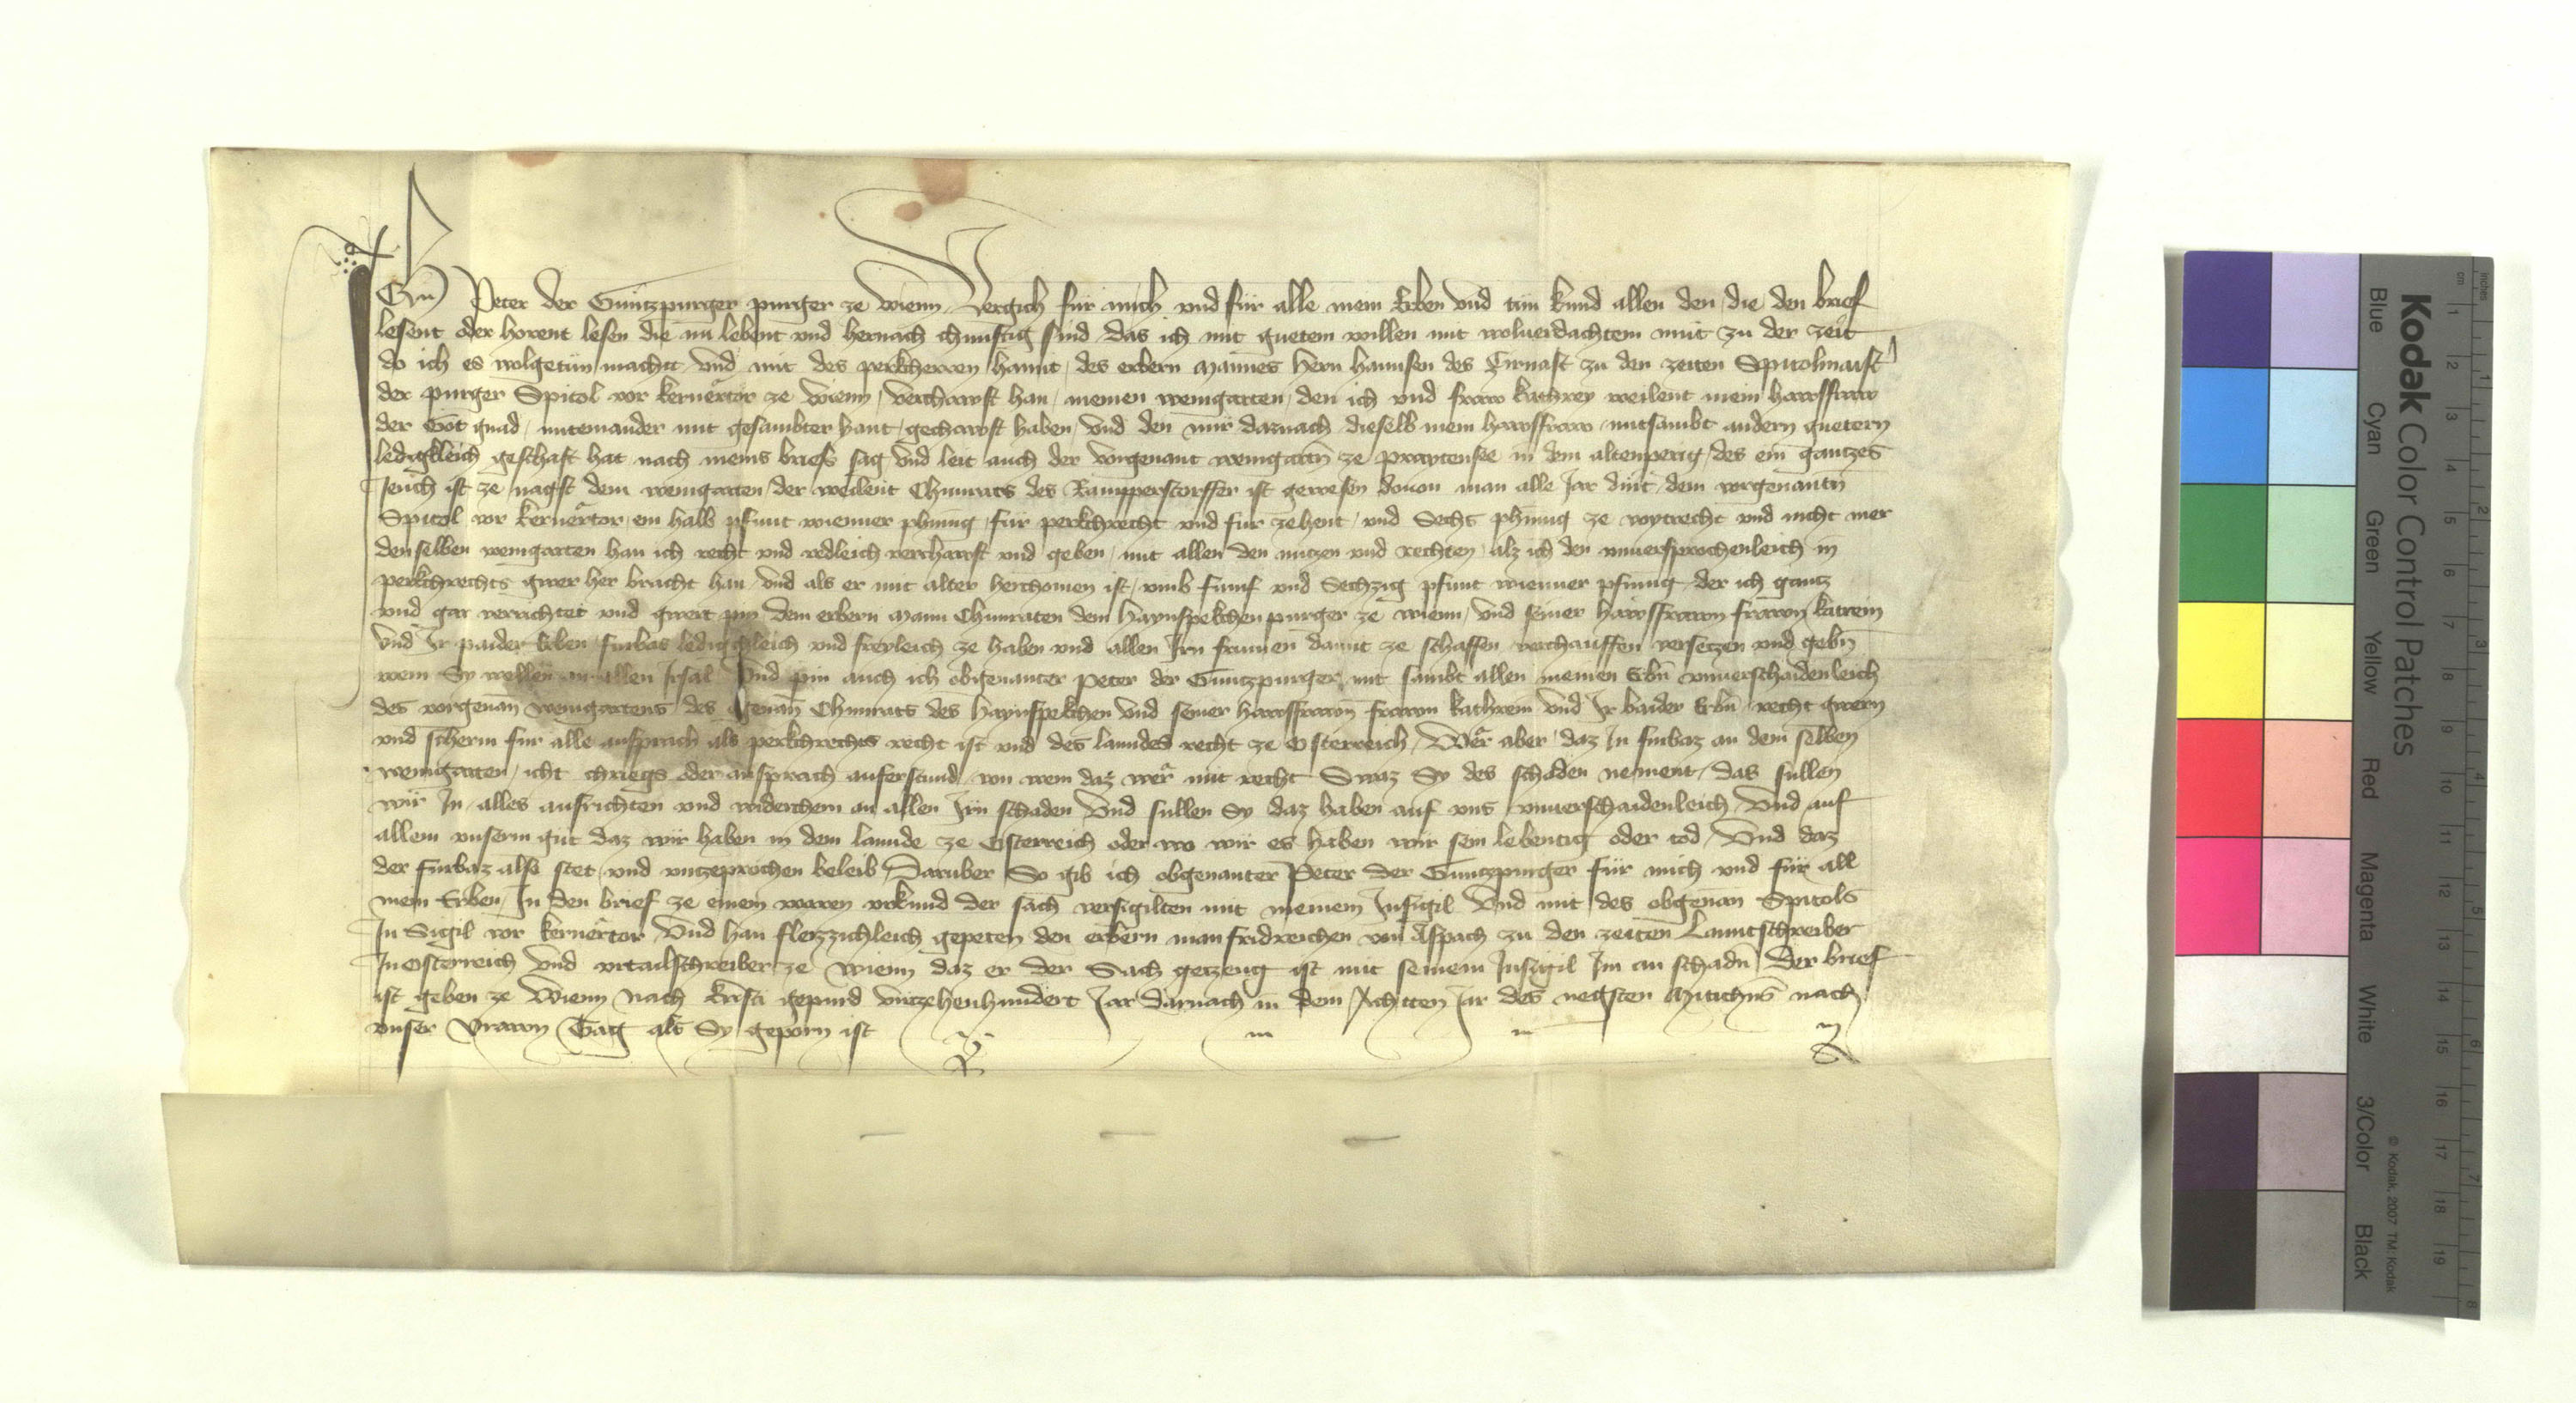 Ich Peter der Güntzpurger purger ze wienn Vergich für mich vnd für alle mein Erben vnd tün kund allen den die den brief
lesent oder horent lesen die nu lebent vnd hernach chunftig sind das ich mit guetem willen mit woluerdachtem müt zu der zeit
do ich es wolgetün macht vnd mit des perkherren hannt des erbern Mannes hern hannsen des Tirnast zu den zeiten Spitolmaist
der purger Spitol vor kernertor ze wienn verchawft han meinen weingarten den ich vnd fraw kathrey weilent mein hawsfraw
der Got gnad miteinander mit gesambter hant gechawft haben vnd den mir darnach dieselb mein hawsfraw mitsambt andern guetern
ledigkleich geschaft hat nach meins briefs sag vnd leit auch der vorgenant weingartn ze praytensee in dem altenperig des ein gantzes
Jeuch ist ze nagst dem weingarten der weilent Chunrats des Rampperstorffer ist gewesen dauon man alle Jar dint dem vorgenantn
Spitol vor kernertor ein halb pfunt wienner phennig für perkchrecht vnd für zehent vnd Sechs phennig ze voytrecht vnd nicht mer
denselben weingarten han ich recht vnd redleich verchawft vnd geben mit allen den nutzen vnd rechten alz ich den vnuersprochenleich in
perkchrechts gwer her bracht han vnd als er mit alter herchomen ist vmb funf vnd Sechzig pfunt wienner pfennig der ich gantz
vnd gar verrichtet vnd gwert pin dem erbern Mann Chunraten dem haynspekchen purger ze wienn vnd seiner hawsfrawn frawn katrein
vnd Ir paider Erben furbas ledigchleich vnd freyleich ze haben vnd allen Irn frumen damit ze schaffen verchauffen versetzen vnd gebn
wem Sy wellen an allen Irsal Vnd pin auch ich obgenanter Peter der Guntzpurger mit sambt allen meinen Erbn vnuerschaidenleich
des vorgenan weingartens des egenan Chunrats des haynspekchen vnd seiner hawsfrawn frawn kathrein vnd Ir baider Erbn recht gwern
vnd scherm fur alle ansprach als perkchrechts recht ist vnd des lanndes recht ze Osterreich Wer aber daz In furbaz an dem selben
weingarten icht chriegs oder ansprach auferstund von wem daz wer mit recht Swaz Sy des schaden nement das sullen
wir In alles aufrichten vnd widerchern an allen Irn schaden Vnd sullen Sy daz haben auf vns vnuerschaidenleich Vnd auf
allem vnserm gut daz wir haben in dem lannde ze Osterreich oder wo wir es haben wir sein lebentig oder tod Vnd daz
der furbaz also stet vnd vnczeprochen beleib Daruber So gib ich obgenanter Peter der Guntzpurger für mich vnd für all
mein Erben In den brief ze einem waren vrkund der sach versigilten mit meinem Insigil Vnd mit des obgenan Spitols
In Sigil vor kernertor Vnd han fleizzichleich gepeten den erbern man fridreichen von Aspach zu den zeiten Lanntschreiber
In Osterreich Vnd vrtailschreiber ze wienn daz er der Sach getzeug ist mit seinem Insigil Im an schadn Der brief
ist geben ze Wienn Nach kristi gepurd virtzehenhundert Jar darnach in dem Achtten Jar des negsten Mitichns nach
vnser Vrawn Tag als Sy geporn ist
Kodak Color Control Patches
Blue Cyan Green Yellow Red Magenta White 3/Color Black
© Kodak, 2007 TM: Kodak
cm 1 2 3 4 5 6 7 8 9 10 11 12 13 14 15 16 17 18 19
inches 1 2 3 4 5 6 7 8